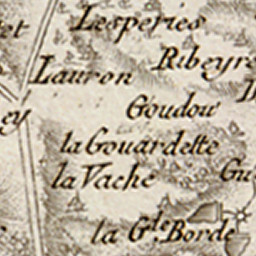 Lesperies
Ribeyre
Lauron
Goudou
la Gouardette
la Vache
la Gde. Borde